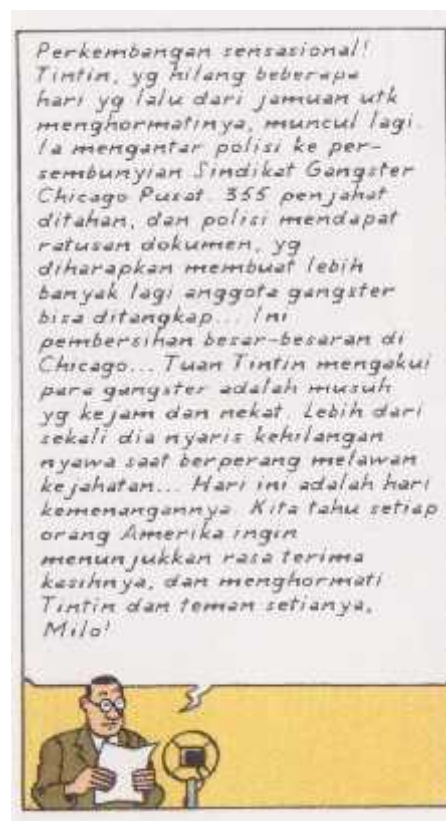 Perkembangan sensasional!
Tintin, yg hilang beberapa
hari yg lalu dari jamuan utk
menghormatinya, muncul lagi.
Ia mengantar polisi ke per-
sembunyian Sindikat Gangster
Chicago Pusat. 355 penjahat
ditahan, dan polisi mendapat
ratusan dokumen, yg
diharapkan membuat lebih
banyak lagi anggota gangster
bisa ditangkap... Ini
pembersihan besar-besaran di
Chicago... Tuan Tintin mengakui
para gangster adalah musuh
yg kejam dan nekat. Lebih dari
sekali dia nyaris kehilangan
nyawa saat berperang melawan
kejahatan... Hari ini adalah hari
kemenangannya. Kita tahu setiap
orang Amerika ingin
menunjukkan rasa terima
kasihnya, dan menghormati
Tintin dan teman setianya,
Milo!